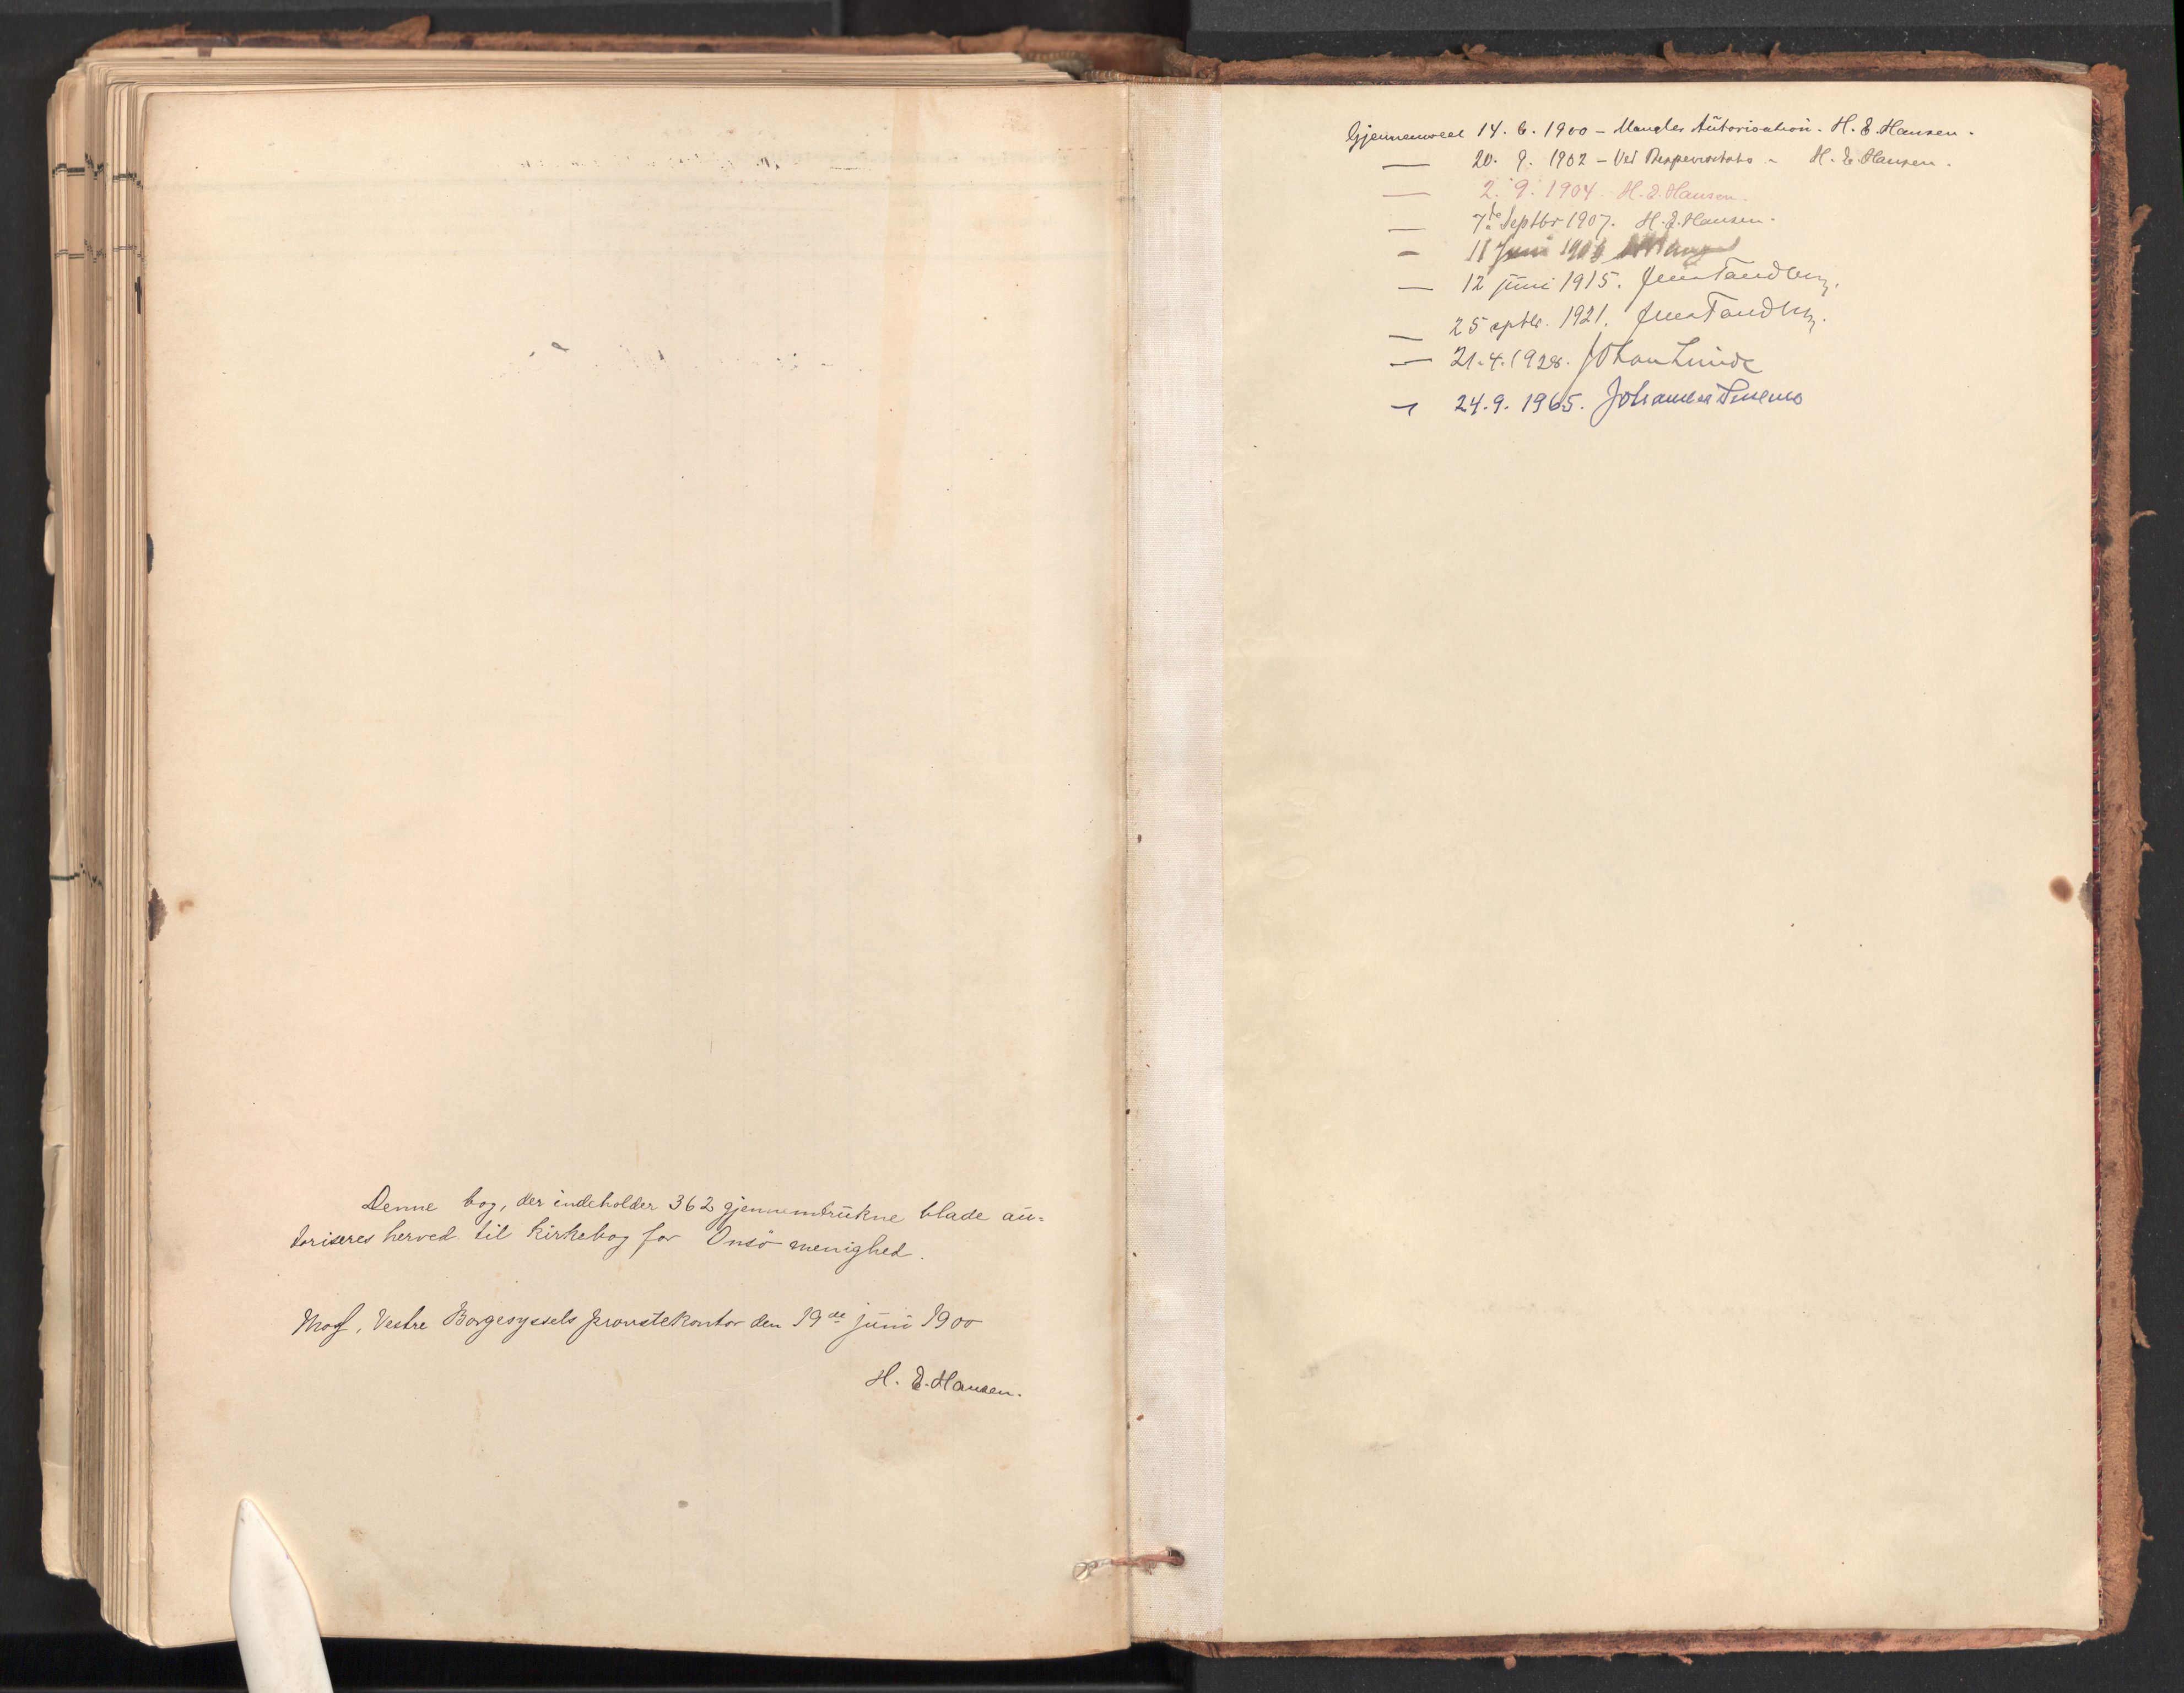 Denne bog, der indeholder 362 gjennemtrukne blade au=
toriseres herved til kirkebog for Onsö menighed.
Moss, Vestre Borgesyssels provstekontor den 19de juni 1900
H. E. Hansen.
Gjennemseet 14. 6. 1900 – Mangler Autorisation. H. E. Hansen.
— 20. 9. 1902 – Ved Bispevisitats – H. E. Hansen.
— 2. 9. 1904. H. E. Hansen.
— 7de Septbr 1907. H. E. Hansen.
– 11 Juni
— 12 juni 1915. Jens Tandberg.
— 25 septbr. 1921. Jens Tandberg.
— 21.4.1928. Johan Lunde
– 24.9.1965. Johannes Smemo